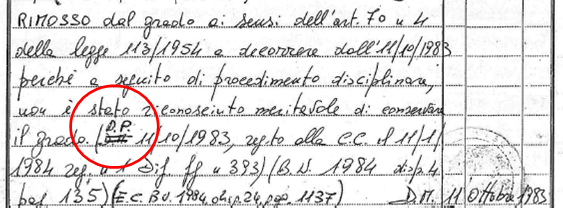 RIMOSSO dal grado ai sensi dell'art. 70 n 4
della legge 113/1954 a decorrere dall'11/10/1983
perché a seguito di procedimento disciplinare,
non è stato riconosciuto meritevole di conservare
il grado (D.P. 11/10/1983, regto alla C.C. il 11/1/
1984 reg. n 1 Dif. fg n 393) (B.U. 1984 disp. 4
pag. 135) (E.C. B.U. 1984, disp. 24, pag. 1137)
D.M. 11 Ottobre 1983